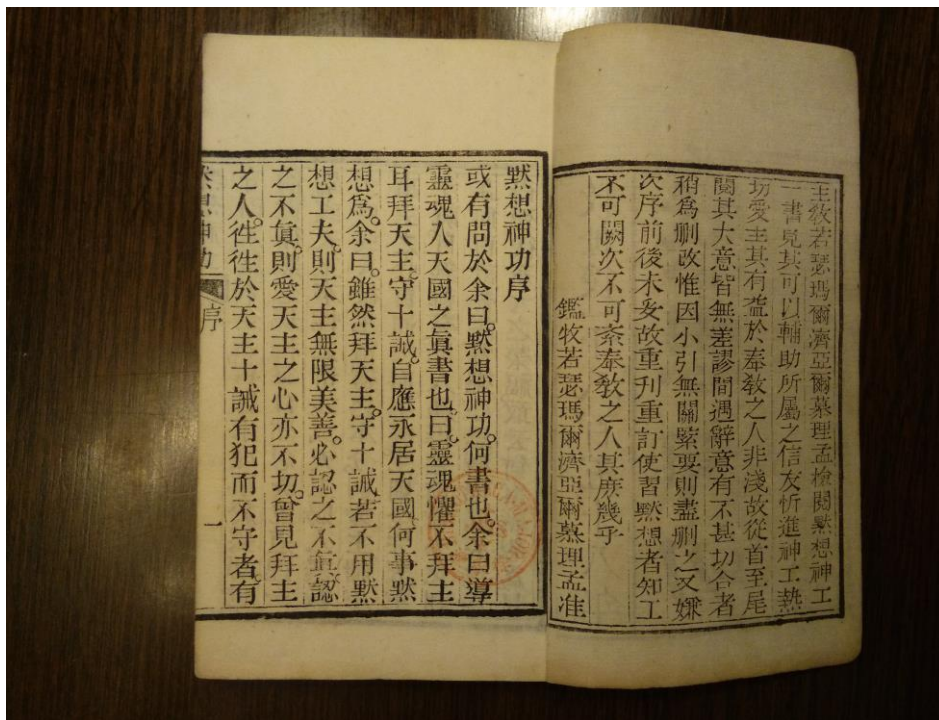 主教若瑟瑪爾濟亞爾慕理孟檢閱默想神工
一書見其可以輔助所屬之信友忻進神工熱
切愛主其有益於奉教之人非淺故從首至尾
閱其大意皆無差謬間遇辭意有不甚切合者
稍為刪改惟因小引無關緊要則盡刪之又嫌
次序前後未妥故重刊重訂使習默想者知工
不可闕次不可紊奉教之人其庶幾乎
鑑牧若瑟瑪爾濟亞爾慕理孟准
默想神功序
或有問於余曰。默想神功。何書也。余曰導
靈魂人天國之眞書也。曰。靈魂懼不拜主
耳拜天主。守十誡。自應永居天國何事默
想爲。余曰。雖然拜天主。守十誡若不用默
想工夫。則天主無限美善。必認之不眞。認
之不眞。則愛天主之心亦不切。曾見拜主
之人。徃徃於天主十誡有犯而不守者。有
默想神功 序 一